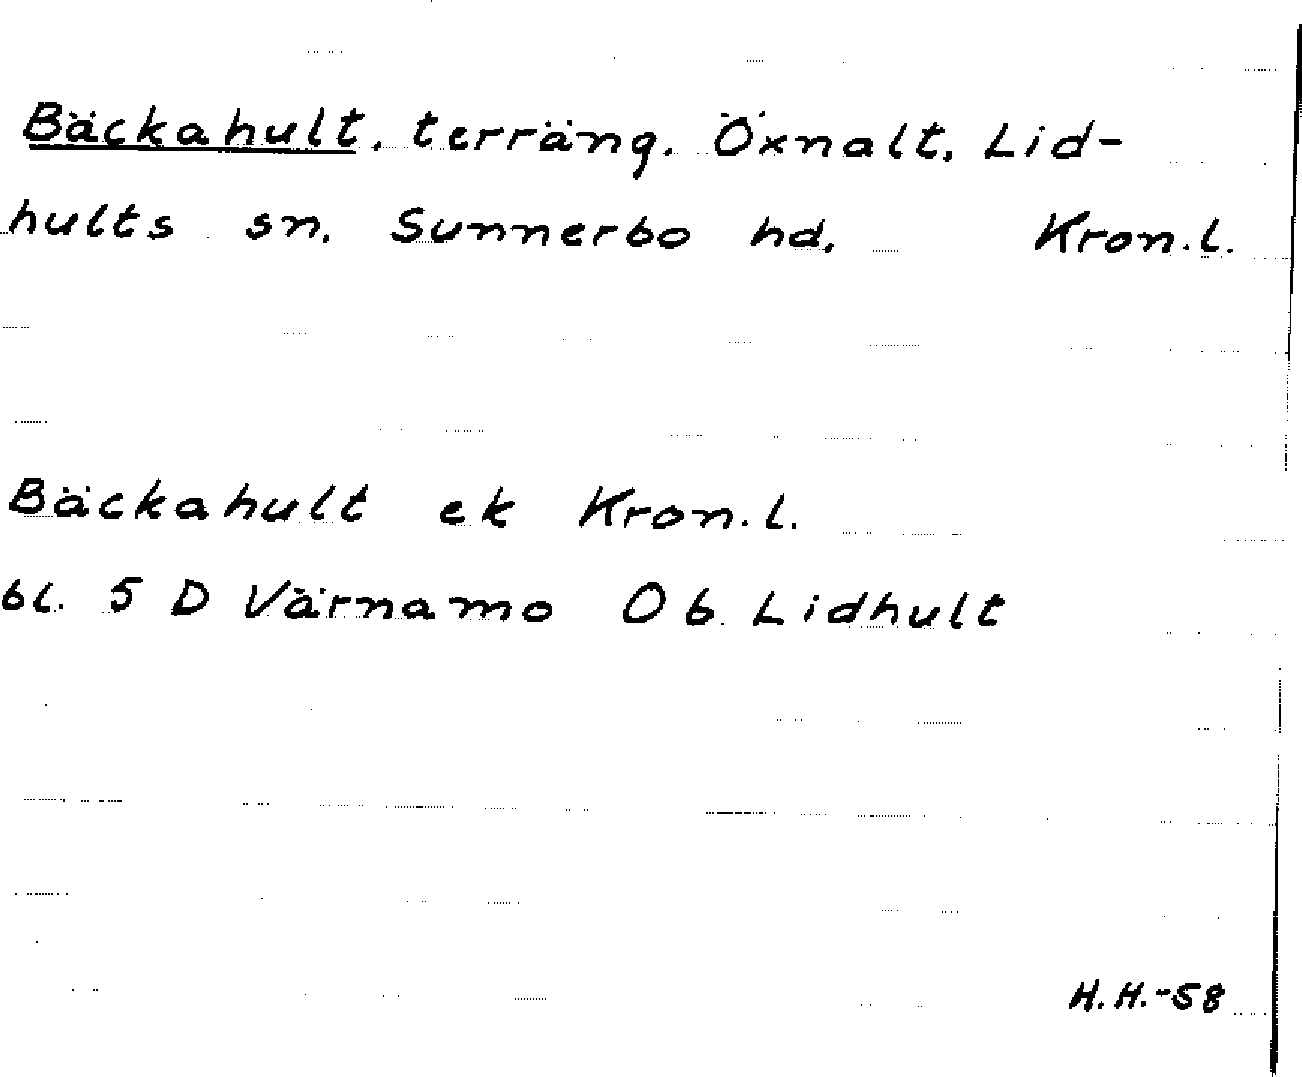 Bäckahult, terräng, Öxnalt, Lid-
hults sn, Sunnerbo hd, Kron.l.
Bäckahult ek Kron.l.
bl. 5 D Värnamo Ob. Lidhult
H.H.-58